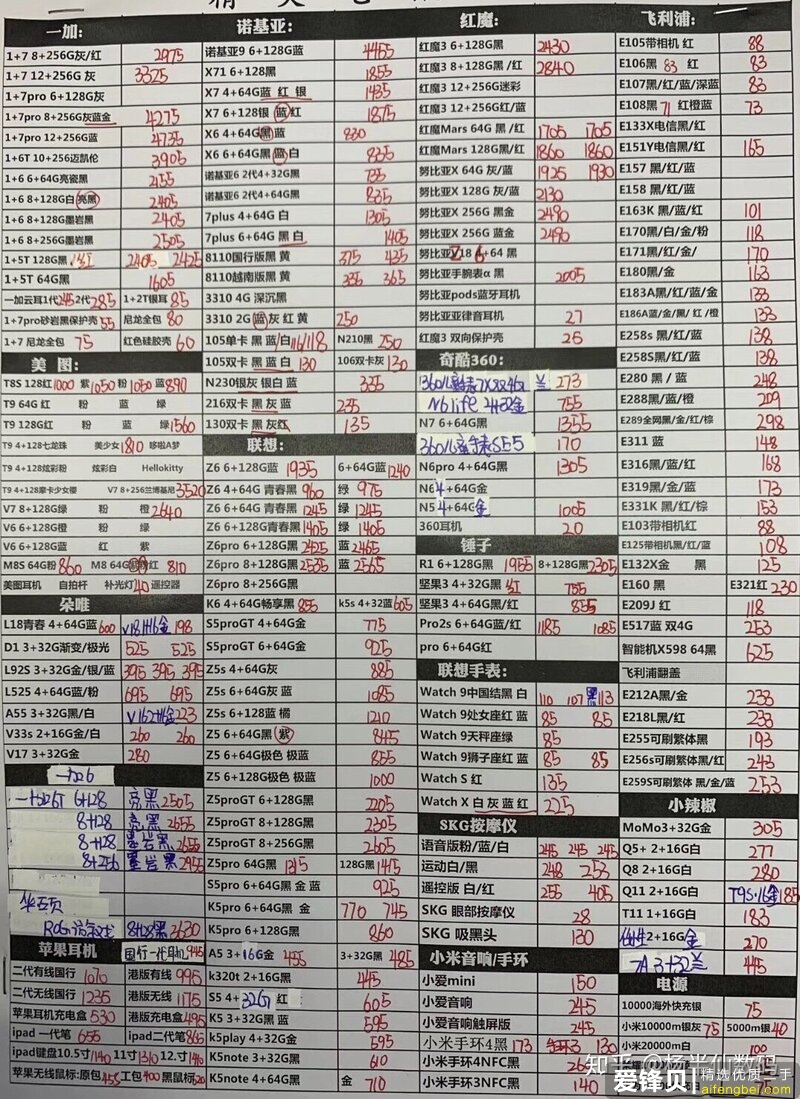 一加:
1+7 8+256G灰/红 2975
1+7 12+256G 灰 3325
1+7pro 6+128G灰
1+7pro 8+256G灰蓝金 4275
1+7pro 12+256G蓝 4735
1+6T 10+256迈凯伦 3905
1+6 6+64G亮瓷黑 2155
1+6 8+128G白亮黑 2405
1+6 8+128G墨岩黑 2405
1+6 8+256G墨岩黑 2505
1+5T 128G黑 红 2405 2425
1+5T 64G黑 1605
一加云耳1代245 2代285 1+2T银耳 85
1+7pro砂岩黑保护壳 55 尼龙全包 80
1+7 尼龙全包 75 红色硅胶壳 60
美 图:
T8S 128红1000 紫1050 粉1050 蓝890
T9 64G 红 粉 蓝 绿
T9 128G红 粉 蓝 绿1560
T9 4+128七龙珠 美少女1810 哆啦A梦
T9 4+128炫彩粉 炫彩白 Hellokitty
T9 4+128摩卡少女樱 V7 8+256兰博基尼3520
V7 8+128G绿 粉 橙 2640
V6 6+128G橙 粉 绿
V6 6+128G蓝 红 紫
M8S 64G粉 860 M8 64G 红 810
美图耳机 自拍杆 补光灯40 遥控器
朵唯
L18青春 4+64G蓝600 V18 1+16金 198
D1 3+32G渐变/极光 525 525
L92S 3+32G金/银/蓝 395 395 395
L525 4+64G蓝/粉 695 695
A55 3+32G黑/白 V16 2+16金 223
V33s 2+16G金/白 260 260
V17 3+32G金 280
一加6
一加6T 6+128 亮黑 2505
8+128 亮黑 2655
8+128 墨岩黑 2655
8+256 墨岩黑 2955
8+128黑 2630
苹果耳机
二代有线国行 1070 港版有线 995
二代无线国行 1235 港版无线 1175
苹果耳机充电盒 530 港版充电盒495
ipad 一代笔 655 ipad二代笔865
ipad键盘10.5寸1140 11寸1310 12.寸1410
苹果无线鼠标:原包455 工包400 黑鼠标520
诺基亚:
诺基亚9 6+128G蓝 4455
X71 6+128黑 1855
X7 4+64G蓝 红 银 1435
X7 6+128银 蓝/红 1875
X6 4+64G黑蓝 830
X6 6+64G黑蓝白 835
诺基亚6 2代4+32G黑 735
诺基亚6 2代4+64G黑 835
7plus 4+64G 白 1305
7plus 6+64G 黑 白 1405
8110国行版黑 黄 375 435
8110越南版黑 黄 335 365
3310 4G 深沉黑
3310 2G 蓝灰 红 黄 250
105单卡 黑 蓝/白116/118 N210黑 250
105双卡 黑 蓝 白 130 106双卡灰 130
N230银灰 银白 蓝 335
216双卡 黑 灰 蓝 235
130双卡 黑 灰 红 135
联想:
Z6 6+128G蓝 1935 6+64G蓝 1240
Z6 4+64G 青春黑 960 绿 975
Z6 6+64G 青春黑 1245 绿 1245
Z6 6+128G 青春黑1405 绿 1405
Z6pro 6+128G黑 2425 蓝 2465
Z6pro 8+128G黑 2535 蓝 2565
Z6pro 8+256G黑
K6 4+64G畅享黑 855 k5s 4+32蓝605
S5proGT 4+64G金 775
S5proGT 6+64G金 925
Z5s 4+64G灰 885
Z5s 6+64G灰 蓝 1085
Z5s 6+128 蓝 橘 1210
Z5 6+64G黑紫 845
Z5 6+64G极色 极蓝 855
Z5 6+128G极色 极蓝 1000
Z5proGT 6+128G黑 2205
Z5proGT 8+128G黑 2305
Z5proGT 8+256G黑 2605
Z5pro 64G黑 1315 128G黑1415
S5pro 6+64G黑 金 蓝 925
K5pro 6+64G黑 金 770 745
K5pro 6+128G黑 860
A5 3+16G金 455 3+32G黑 485
k320t 2+16G黑 445
S5 4+32G 红 605
K5 3+32G黑 蓝 595
k5play 4+32G金 595
K5note 3+32G黑 610
K5note 4+64G黑 金 710
红魔:
红魔3 6+128G黑 2430
红魔3 8+128G黑/红 2840
红魔3 12+256G迷彩
红魔3 12+256G红/蓝
红魔Mars 64G 黑 /红 1705 1705
红魔Mars 128G黑/红 1860 1860
努比亚X 64G 灰/蓝 1925 1930
努比亚X 128G 灰/蓝 2130
努比亚X 256G 黑金 2490
努比亚X 256G 蓝金 2490
努比亚 18 +64 黑
努比亚手腕表α 黑 2005
努比亚pods蓝牙耳机
努比亚亚律音耳机 27
红魔3 双向保护壳 25
奇酷360:
273
N6 life 755
N7 6+64G黑 1355
360儿童手表SE5 170
N6pro 4+64G黑 1305
N6 4+64G金
N5 4+64G金 1005
360耳机 20
锤子
R1 6+128G黑 1955 8+128G黑2305
坚果3 4+32G黑 红 755
坚果3 4+64G黑/红 855
Pro2s 6+64G蓝/红 1185 1085
pro 6+64G红
联想手表:
Watch 9中国结黑 白 110 107 黑113
Watch 9处女座红 蓝 85 85
Watch 9天秤座绿 85
Watch 9狮子座红 蓝 85 85
Watch S 红 135
Watch X 白 灰 蓝 红 225
SKG按摩仪
语音版粉/蓝/白 245 245 245
运动白/黑 248 253
遥控版 白/红 255 405
SKG 眼部按摩仪 28
SKG 吸黑头 130
小米音响/手环
小爱mini 150
小爱音响 245
小爱音响触屏版 245
小米手环4黑 173 130
小米手环4NFC黑
小米手环3NFC黑 140
飞利浦:
E105带相机 红 88
E106黑 83 红 83
E107黑/红/蓝/深蓝 83
E108黑 71 红橙蓝 73
E133X电信黑/红
E151Y电信黑/红 165
E157 黑/红/蓝
E158 黑/红/蓝
E163K 黑/蓝/红 101
E170黑/白/金/粉 118
E171黑/红/金/ 170
E180黑/金 163
E183A黑/红/蓝/金 133
E186A蓝/金/黑/ 红 /橙 133
E258s 黑/蓝 138
E258S黑/红 138
E280 黑 / 蓝 248
E288黑/蓝/橙 209
E289全网黑/金/红/棕 298
E311 蓝 148
E316黑/蓝/黑 168
E319黑/金/蓝 173
E331K 黑/红/棕 153
E103带相机红 88
E125带相机黑/红/蓝 108
E132X金 黑 125
E160 黑 E321红 230
E209J 红 118
E517蓝 双4G 253
智能机X598 64黑 625
飞利浦翻盖
E212A黑/金 233
E218L黑/红 233
E255可刷繁体黑 193
E256s可刷繁体黑/红 243
E259S可刷繁体 黑/金/蓝 253
小辣椒
MoMo3+32G金 305
Q5+ 2+16G白 277
Q8 2+16G白 280
Q11 2+16G白 185
T11 1+16G白 183
2+16G金 270
7A 3+32兰 445
电源
10000海外快充银 75
小米10000m银灰75 5000m银40
小米20000m白 100
知乎 @杨半仙数码
爱锋贝 精选优质二手
aifengbei.com